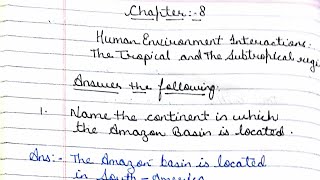 Chapter:-8
Human Environment Interactions:
The Tropical and The Subtropical regi
Answer the following.
1. Name the continent in which
the Amazon Basin is located.
Ans:- The Amazon basin is located
in South-America